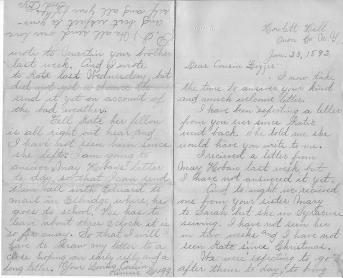 Howlett Hill
Onon Co. N.Y.
Jan. 23, 1892
Dear Cousin Lizzie:
I now take
the time to answer your kind
and much welcome letter.
I have been expecting a letter
from you ever since Kate
went back. She told me she
would have you write to me.
I received a letter from
May Hoban last week but
I have not answered it yet.
And to night we received
one from your sister Mary
to Sarah but she in Syracuse
sewing. I have not seen her
in this week and I have not
seen Kate since Christmas.
We were expecting to go
after them to day, to bring
wrote to Martin your brother
last week. And I wrote
to Kate last Wednesday, but
did not get a chance to
send it yet on account of
the bad weather.
Tell Kate her fellow
is all right out hear and
I have not seen him since
she left. I am going to
answer May Hoban's letter
to day so that I can send
them both with Edward to
mail in Elbridge where he
goes to school. He has to
leave about three o'clock it is
so far away. Well I will
have to draw my letter to a
close hoping an early reply and a
long letter. Your loving Cousin